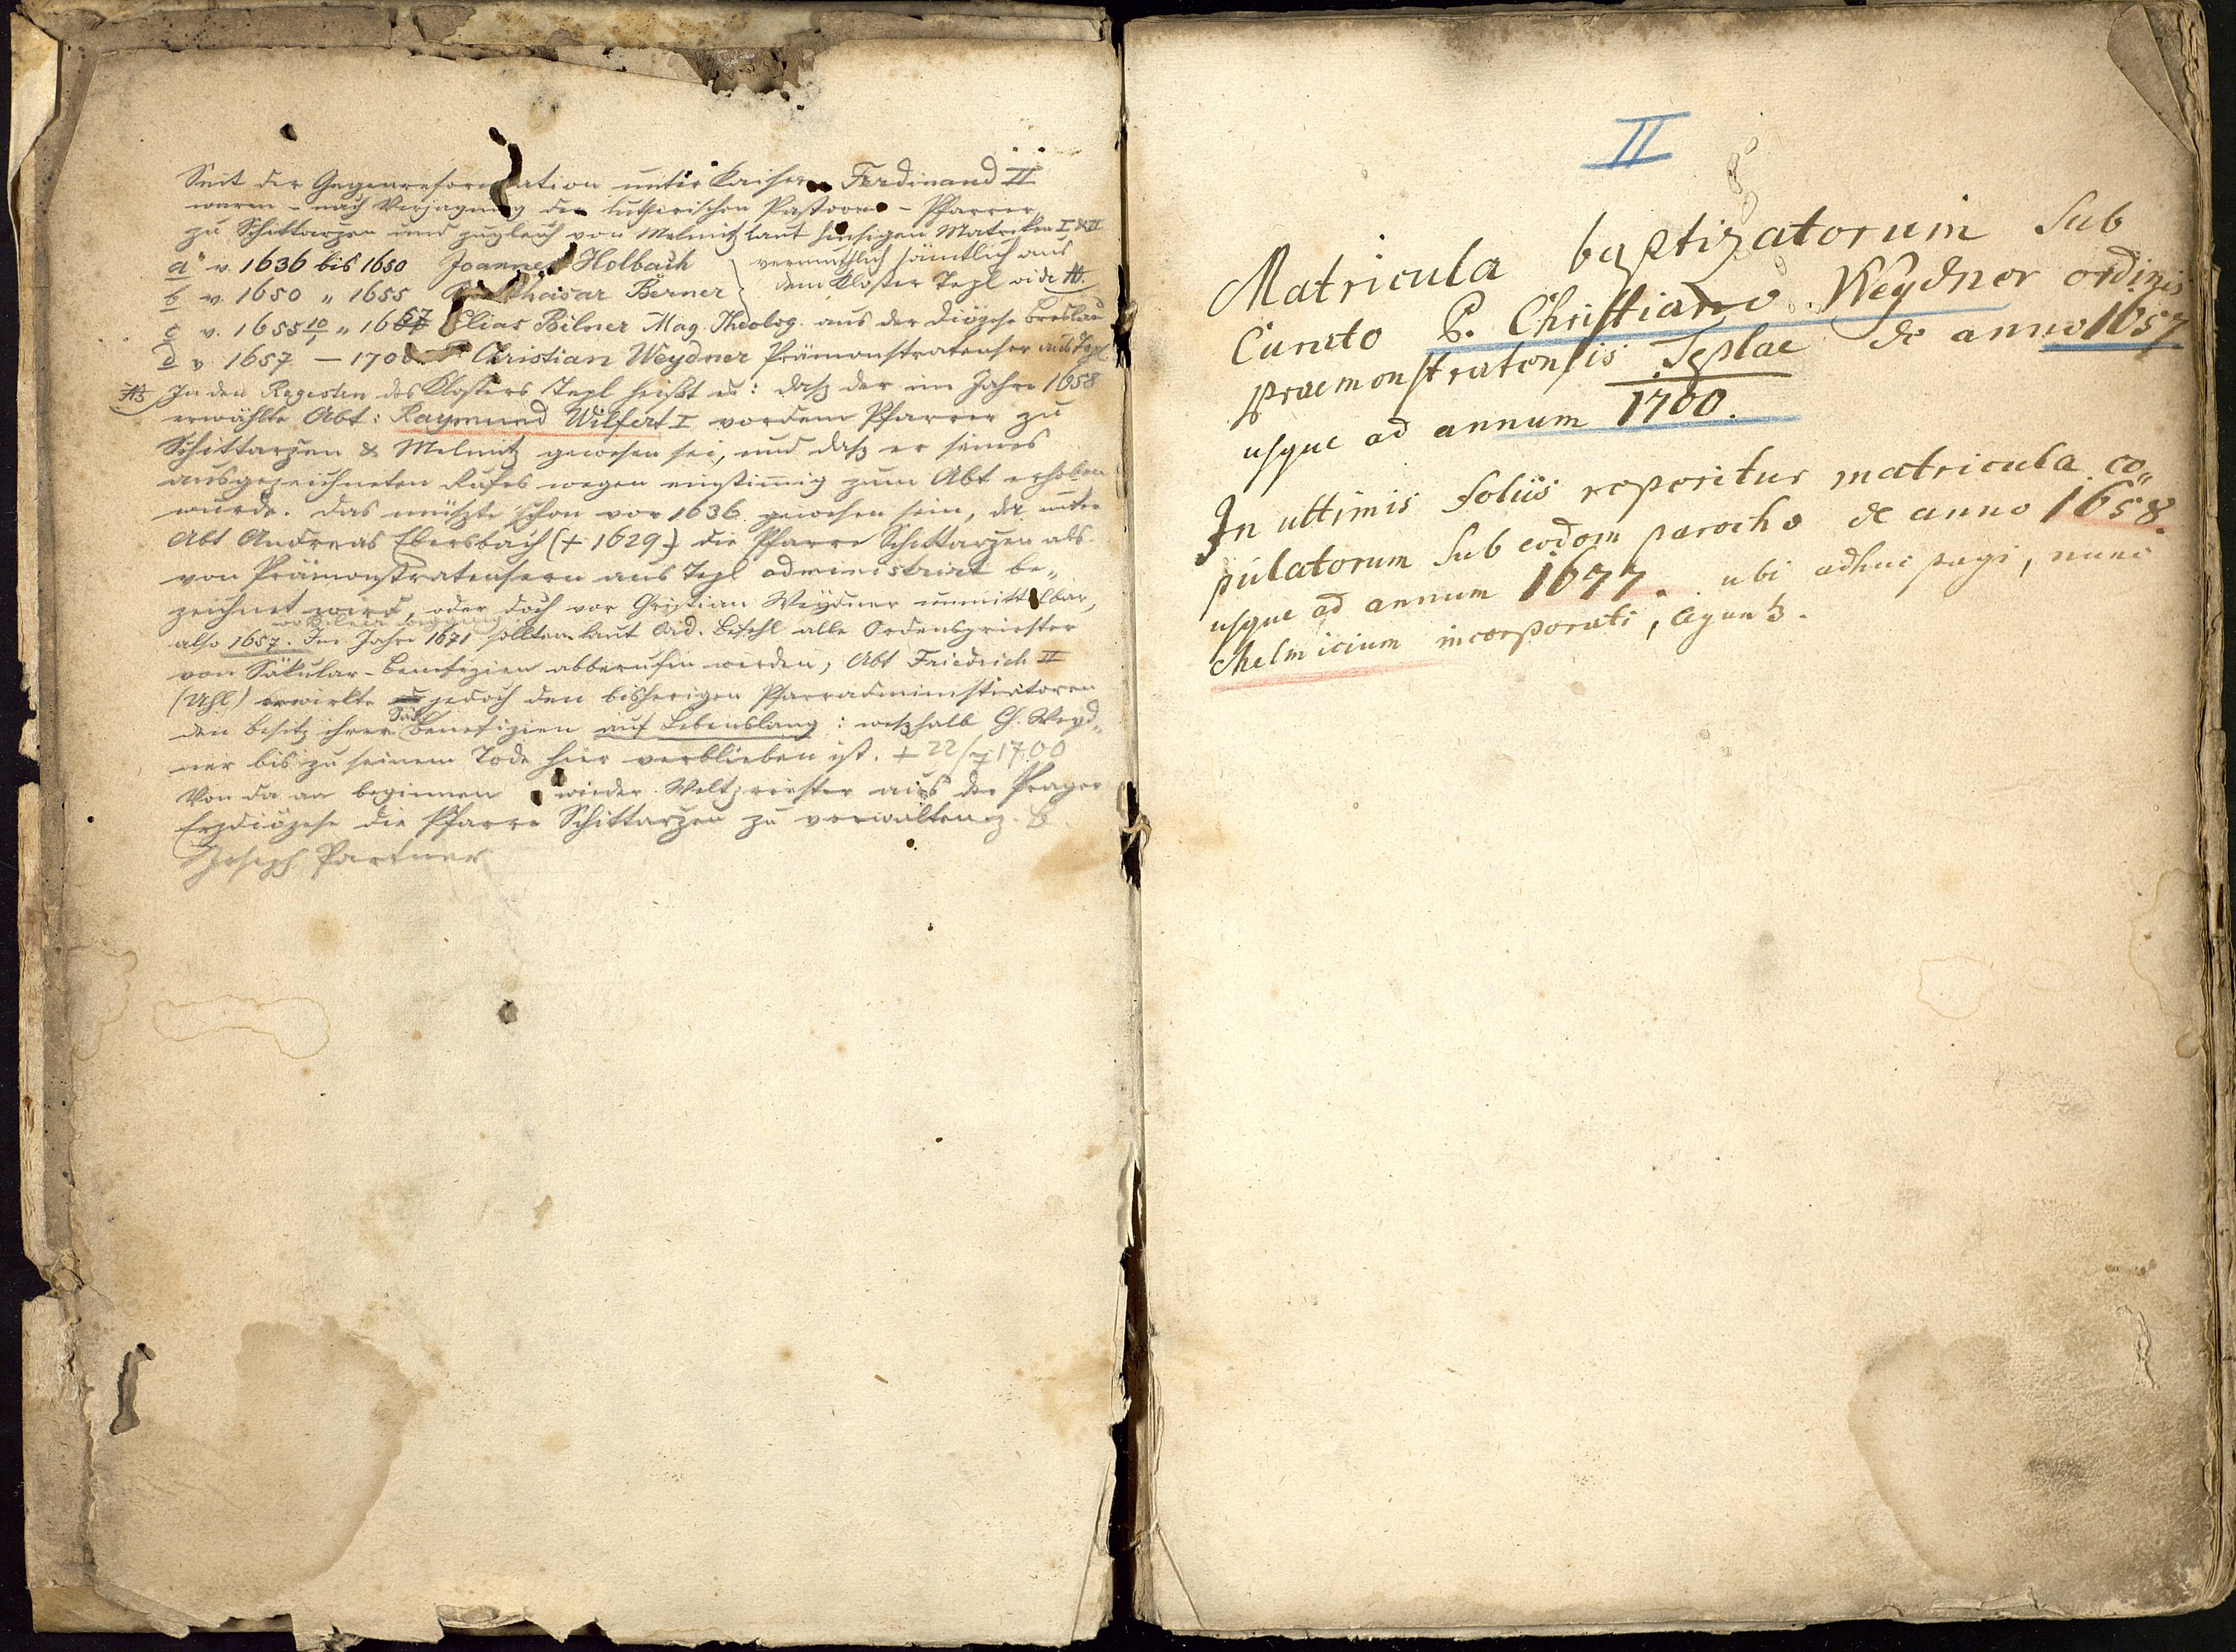 Seit der Gegenreformation unter Kaiser Ferdinand II
waren – nach Verjagung der lutherischen Pastoren – Pfarrer
zu Schittarzen und zugleich von Melmitz laut hiesigen Matriken I & II
a v. 1636 bis 1650 Joannes Holbach } vermuthlich sämtlich aus
b v. 1650 „ 1655 Berner } dem Kloster Tepl vide #.
c v. 1655 10 „ 1657 Elias Bilner Mag. Theolog. aus der Diözese Breslau
d v. 1657 – 1700 Christian Weydner Prämonstratenser aus Tepl
# In den Regesten des Klosters Tepl heißt es: daß der im Jahre 1658
erwählte Abt: Raymund Wilfert I vordem Pfarrer zu
Schittarzen & Melmitz gewesen sei, und daß er seines
ausgezeichneten Rufes wegen einstimmig zum Abt erhoben
wurde. Das müßte schon vor 1636 gewesen sein, da unter
Abt Andreas Ebersbach († 1629) die Pfarre Schittarzen als
von Prämonstratensern aus Tepl administrirt be„
zeichnet wird, oder doch vor Christian Weydner unmittelbar,
also 1657. Im Jahre 1671 sollten laut Befehl alle Ordenspriester
von Säkular-Benefizien abberufen werden, Abt Friedrich II
(Uhl) erwirkte jedoch den bisherigen Pfarradministratoren
den Besitz ihrer Benefizien auf Lebenslang: weßhalb Ch. Weyd„
ner bis zu seinem Tode hier verblieben ist. † 22/7 1700
Von da an beginnen wieder Weltpriester aus der Prager
Erzdiözese die Pfarre Schittarzen zu verwalten z. B.
Joseph Partner
II
Matricula baptizatorum sub
Curato P. Christiano Weydner ordinis
praemonstratensis Teplae de anno 1657
usque ad annum 1700.
In ultimis foliis reperitur matricula co„
pulatorum sub eodem parocho de anno 1658.
usque ad annum 1677. ubi adhuc pagi, nunc
Melmicium incorporati, agunt.